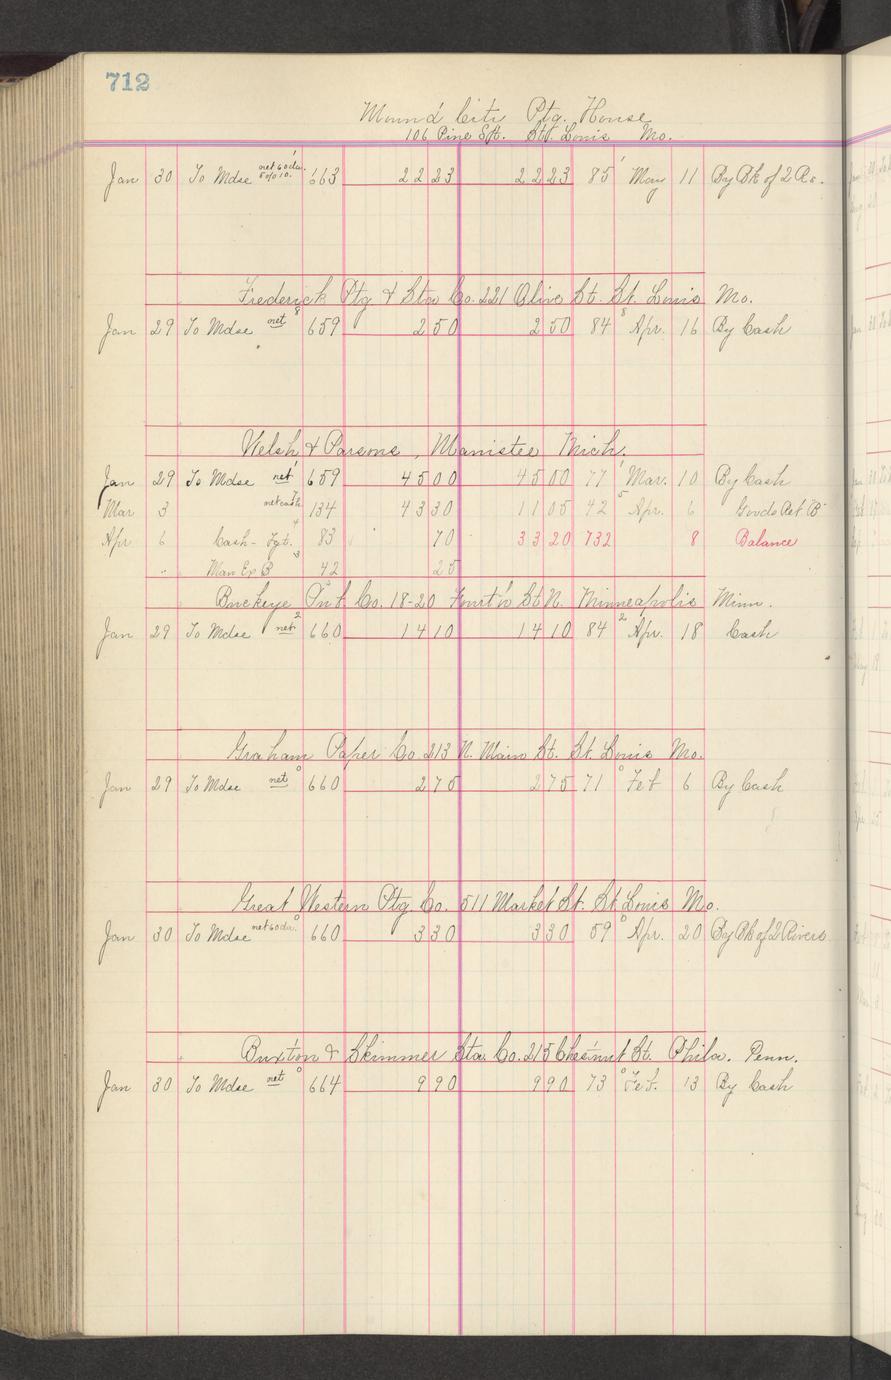 712
Mound City Ptg. House
106 Pine St. St. Louis Mo.
Jan 30 To Mdse net 60 da. 5 o/o 10. 663 22 23 22 23 85 May 11 By Bk of 2 Rs.
Frederick Ptg & Sta Co. 221 Olive St. St. Louis Mo.
Jan 29 To Mdse net 8 659 2 50 2 50 84 8 Apr. 16 By Cash
Welsh & Parsons, Manistee Mich.
Jan 29 To Mdse net 1 659 45 00 45 00 77 1 Mar. 10 By Cash
Mar 3 net cash 134 43 30 11 05 42 5 Apr. 6 Goods Ret "B"
Apr 6 Cash - Fgt. 4 83 70 33 20 732 8 Balance
" Man Ex B 3 42 25
Buckeye Ptg. Co. 18-20 Fourth St N. Minneapolis Minn.
Jan 29 To Mdse net 2 660 14 10 14 10 84 2 Apr. 18 Cash
Graham Paper Co 213 N. Main St. St. Louis Mo.
Jan 29 To Mdse net 0 660 2 75 2 75 71 0 Feb 6 By Cash
Great Western Ptg. Co. 511 Market St. St Louis Mo.
Jan 30 To Mdse net 60 da. 0 660 3 30 3 30 59 0 Apr. 20 By Bk of 2 Rivers
Buxton & Skimmer Sta. Co. 215 Chestnut St. Phila. Penn.
Jan 30 To Mdse net 0 664 9 90 9 90 73 0 Feb. 13 By Cash